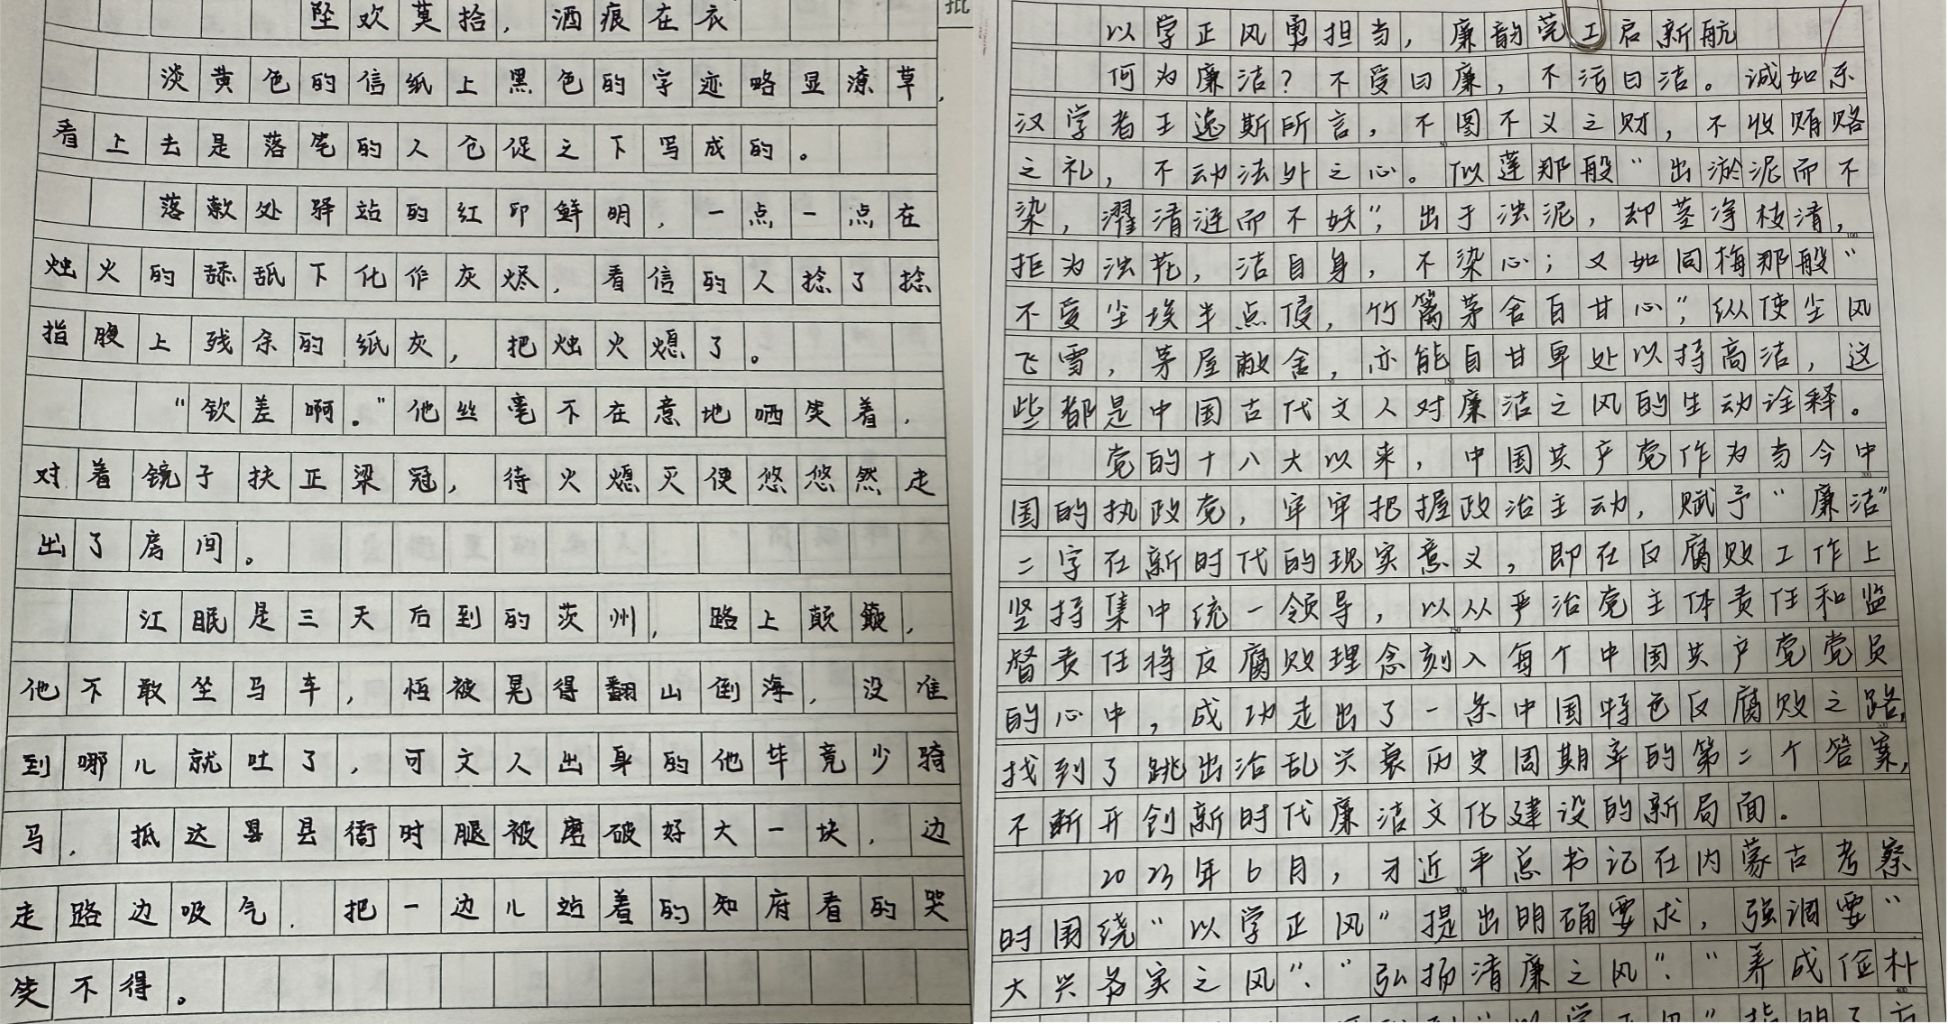 坠欢莫拾，酒痕在衣
批
淡黄色的信纸上黑色的字迹略显潦草，
看上去是落笔的人仓促之下写成的。
落款处驿站的红印鲜明，一点一点在
烛火的舔舐下化作灰烬，看信的人捻了捻
指腹上残余的纸灰，把烛火熄了。
“钦差啊。”他丝毫不在意地哂笑着，
对着镜子扶正梁冠，待火熄灭便悠悠然走
出了房间。
江眠是三天后到的茨州，路上颠簸，
他不敢坐马车，恒被晃得翻山倒海，没准
到哪儿就吐了，可文人出身的他毕竟少骑
马，抵达县县衙时腿被磨破好大一块，边
走路边吸气，把一边儿站着的知府看的哭
笑不得。
以学正风勇担当，廉韵莞工启新航
何为廉洁？不受曰廉，不污曰洁。诚如东
汉学者王逸斯所言，不图不义之财，不收贿赂
之礼，不动法外之心。似莲那般“出淤泥而不
染，濯清涟而不妖”，出于浊泥，却茎净枝清，
拒为浊花，洁自身，不染心；又如同梅那般“
不受尘埃半点侵，竹篱茅舍自甘心”，纵使尘风
飞雪，茅屋敝舍，亦能自甘卑处以持高洁，这
些都是中国古代文人对廉洁之风的生动诠释。
党的十八大以来，中国共产党作为当今中
国的执政党，牢牢把握政治主动，赋予“廉洁”
二字在新时代的现实意义，即在反腐败工作上
坚持集中统一领导，以从严治党主体责任和监
督责任将反腐败理念刻入每个中国共产党党员
的心中，成功走出了一条中国特色反腐败之路，
找到了跳出治乱兴衰历史周期率的第二个答案，
不断开创新时代廉洁文化建设的新局面。
2023年6月，习近平总书记在内蒙古考察
时围绕“以学正风”提出明确要求，强调要“
大兴务实之风”、“弘扬清廉之风”、“养成俭朴
“以学正风”指明了方